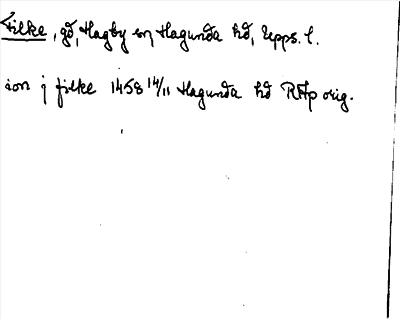 Filke, gd, Hagby sn Hagunda hd, Upps. l.
ion j filke 1458 14/11 Hagunda hd RAp orig.